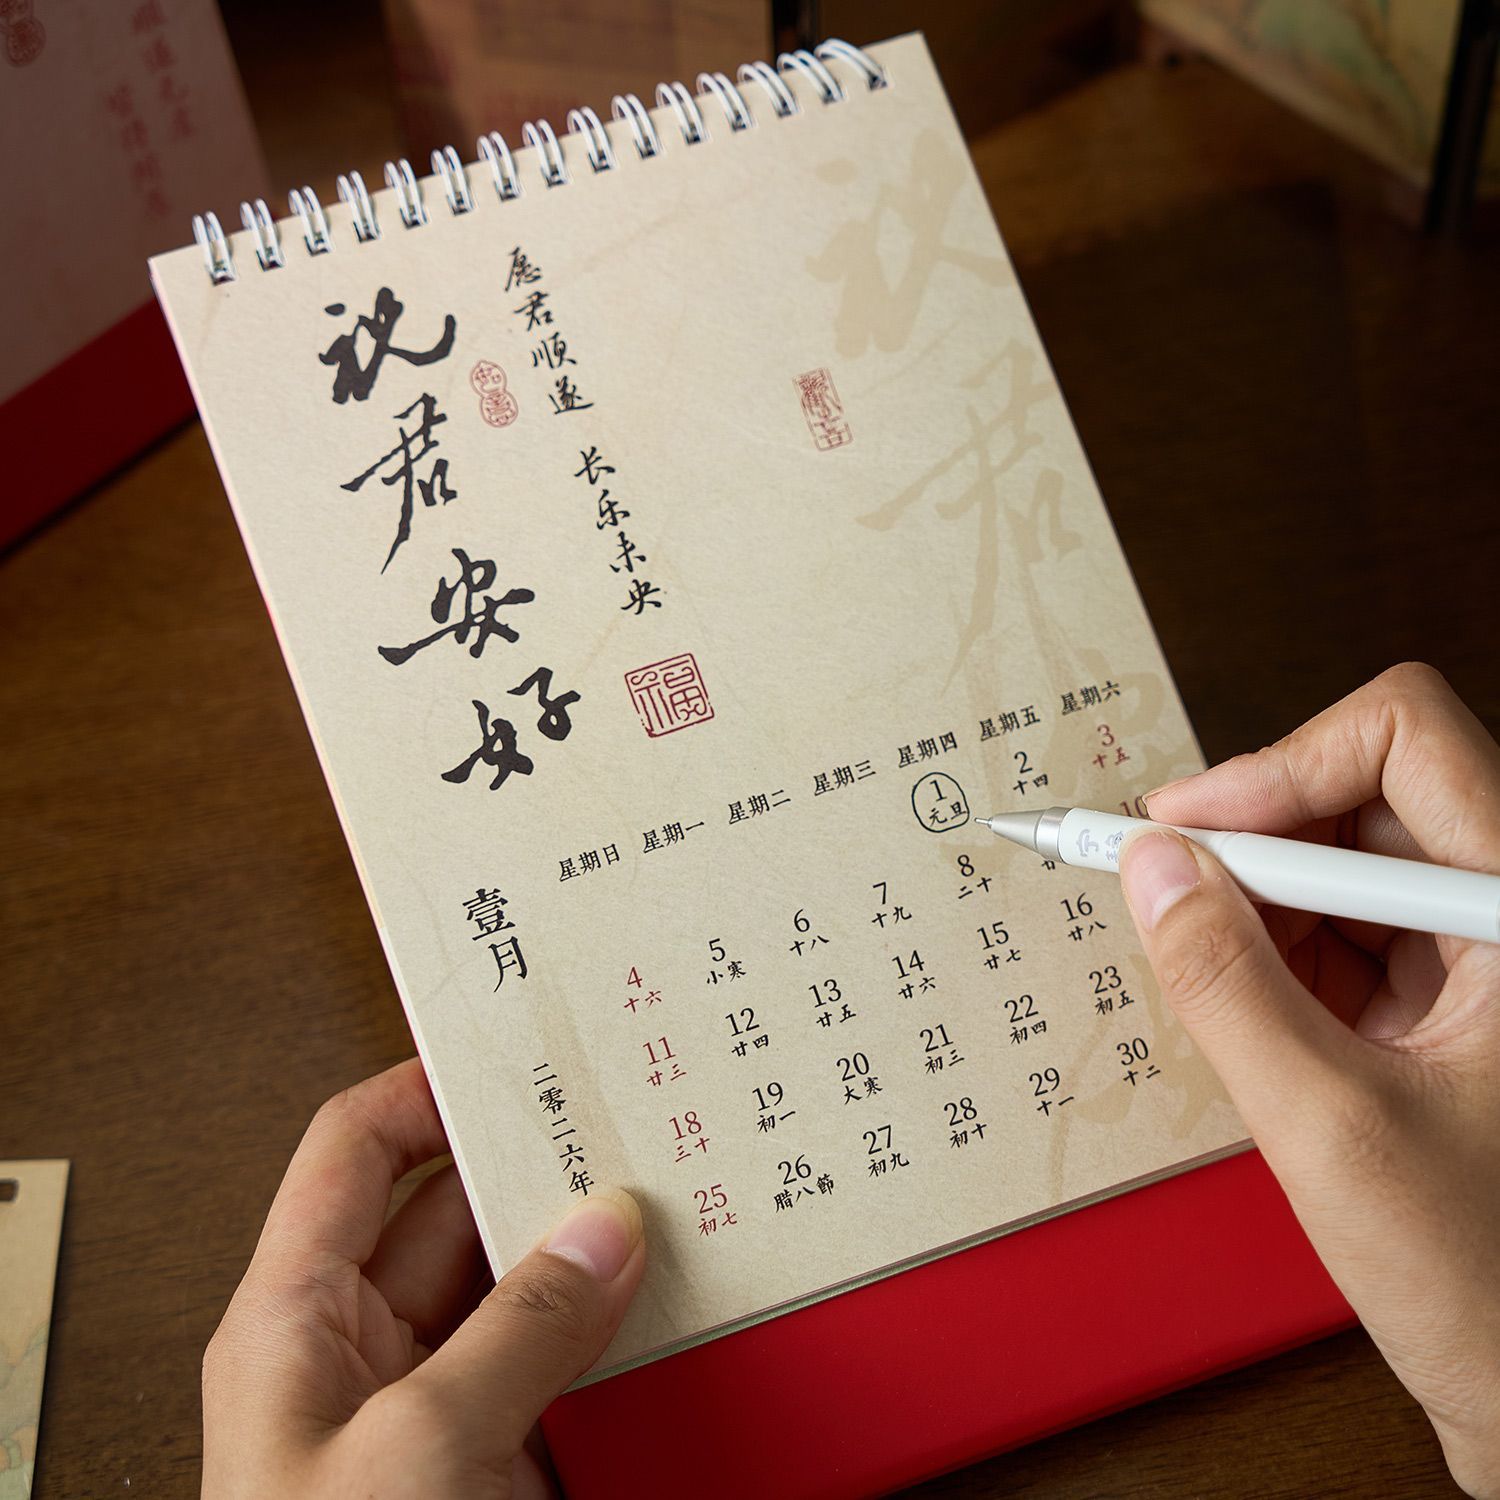 祝君安好
愿君顺遂 长乐未央
如意
福
祝君
壹月
二零二六年
星期日 星期一 星期二 星期三 星期四 星期五 星期六
1 2 3
元旦 十四 十五
4 5 6 7 8 10
十六 小寒 十八 十九 二十 廿
11 12 13 14 15 16
廿三 廿四 廿五 廿六 廿七 廿八
18 19 20 21 22 23
三十 初一 大寒 初三 初四 初五
25 26 27 28 29 30
初七 腊八節 初九 初十 十一 十二